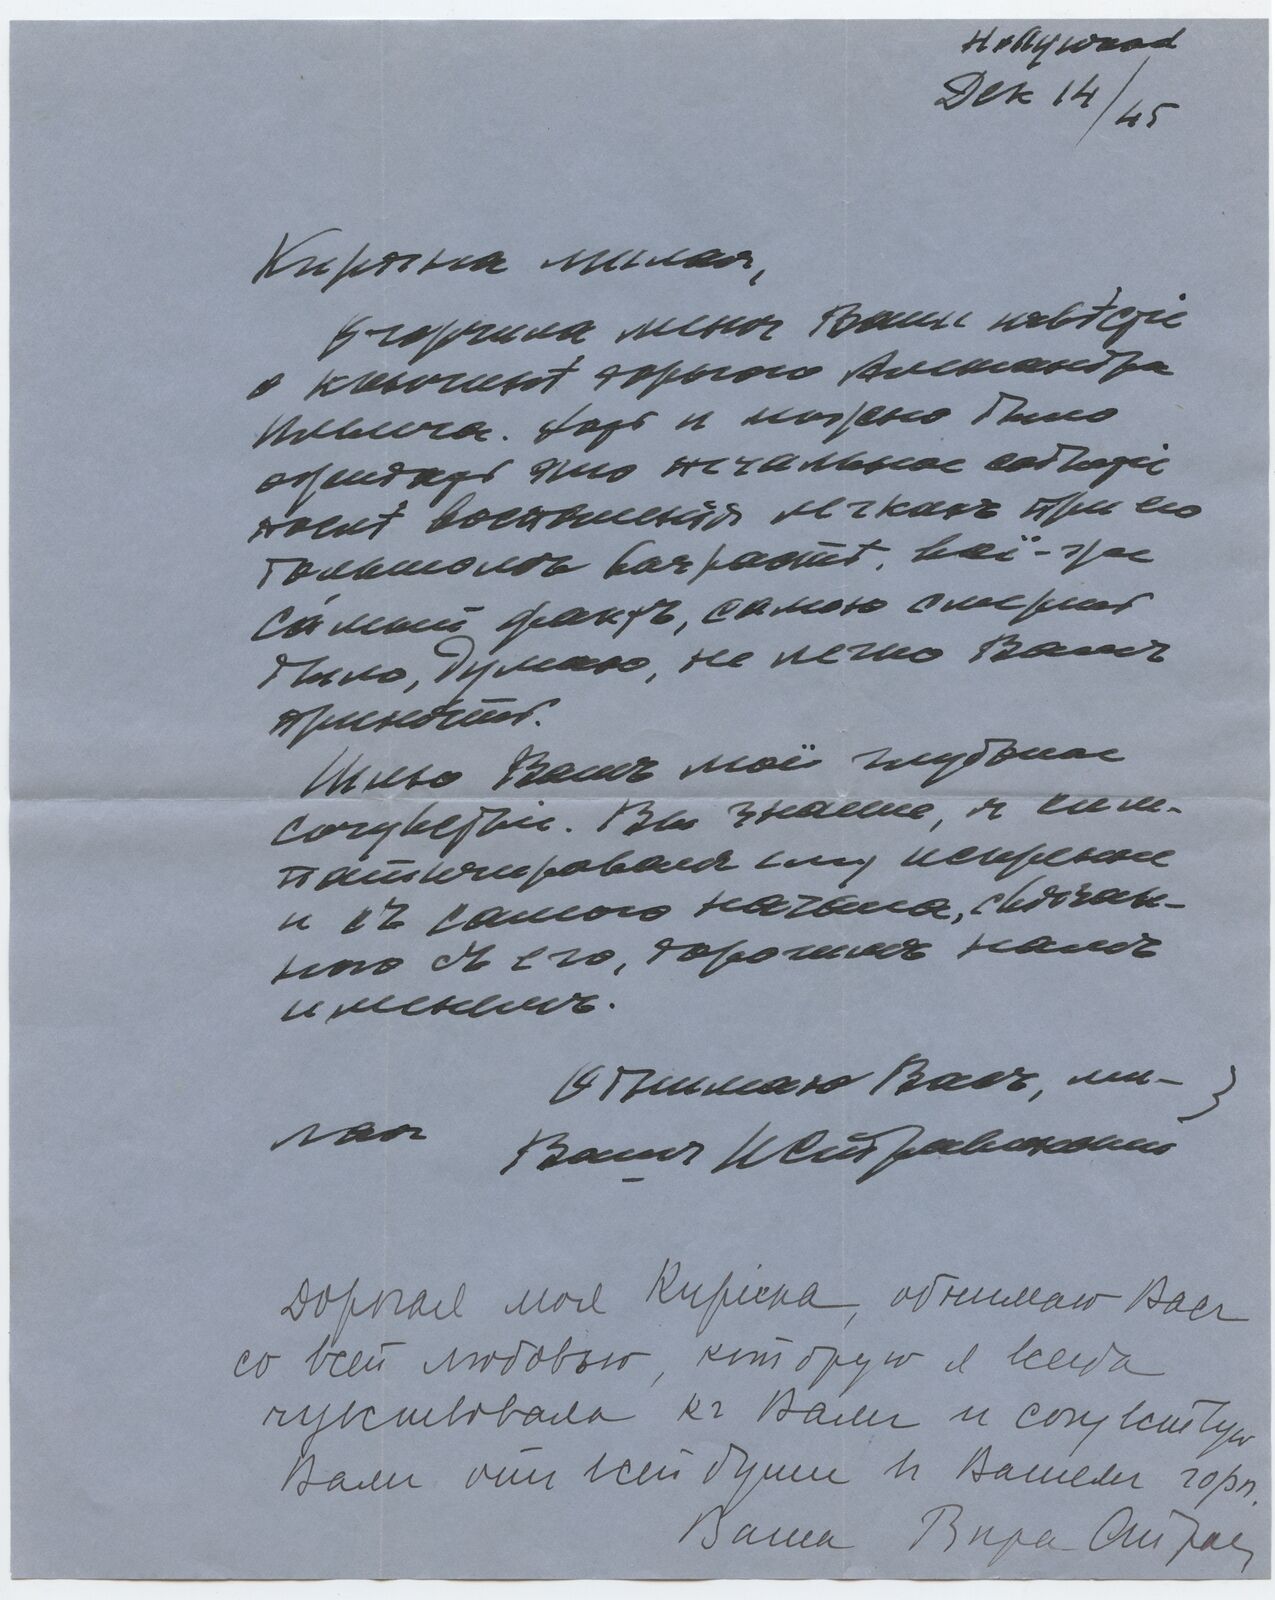 Hollywood
Дек 14/45
Кирѣна милая,
Огорчила меня Ваши извѣстіе
о кончинѣ дорогого Александра
Ильича. Хоть и можно было
ожидать это печальное событіе
послѣ воспаленія легкихъ при его
большомъ возрастѣ, всё-же
са́мый фактъ, самою смерть
было, думаю, не легко Вамъ
принять.
Шлю Вамъ моё глубокое
сочувствіе. Вы знаете, я сим-
патизировалъ ему искренне
и съ самого начала, связан-
ного съ его, дорогимъ намъ
именемъ.
Обнимаю Васъ, ми-
лая
Вашъ ИСтравинскій
Дорогая моя Кирiена, обнимаю Васъ
со всей любовью, которую я всегда
чувствовала къ Вамъ и сочувствую
Вамъ отъ всей души в Вашемъ горѣ.
Ваша Вѣра Страв